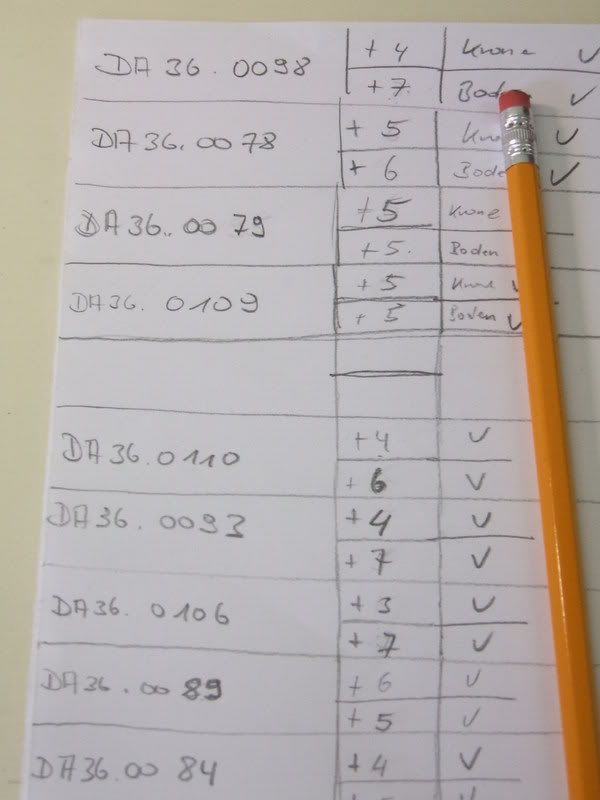 DA 36.0098 +4 Krone ✓
+7 ✓
DA 36.0078 +5 ✓
+6 ✓
DA 36.0079 +5 Krone
+5. Boden
DA36.0109 +5 ✓
+5 Boden ✓
DA36.0110 +4 ✓
+6 ✓
DA36.0093 +4 ✓
+7 ✓
DA36.0106 +3 ✓
+7 ✓
DA36.0089 +6 ✓
+5 ✓
DA36.0084 +4 ✓